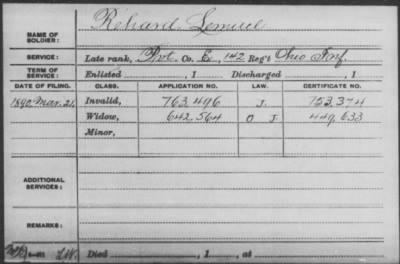 NAME OF SOLDIER: Rehard Lemuel
SERVICE: Late rank, Pvt. Co. E, 142 Reg't Ohio Inf.
TERM OF SERVICE: Enlisted , 1 Discharged , 1
DATE OF FILING. CLASS. APPLICATION NO. LAW. CERTIFICATE NO.
1890, Mar. 21, Invalid, 763,496 J. 753,374
Widow, 642,564 O J. 449,633
Minor,
ADDITIONAL SERVICES:
REMARKS:
Died , 1 , at